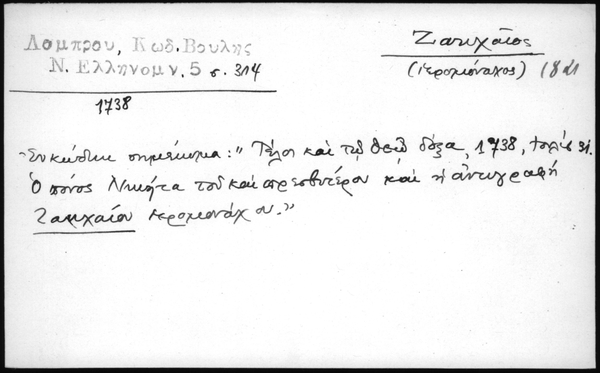 Λαμπρου, Κωδ. Βουλης
Ν. Ελληνομν. 5 σ. 314
Ζακχαῖος
(ἱερομόναχος)
1738
Ἐν κώδικι σημείωμα: "Τέλος καὶ τῷ Θεῷ δόξα, 1738, 31.
Ὁ πόνος Νικήτα τοῦ καὶ πρεσβυτέρου καὶ ἡ ἀντιγραφή
Ζακχαίου ἱερομονάχου."